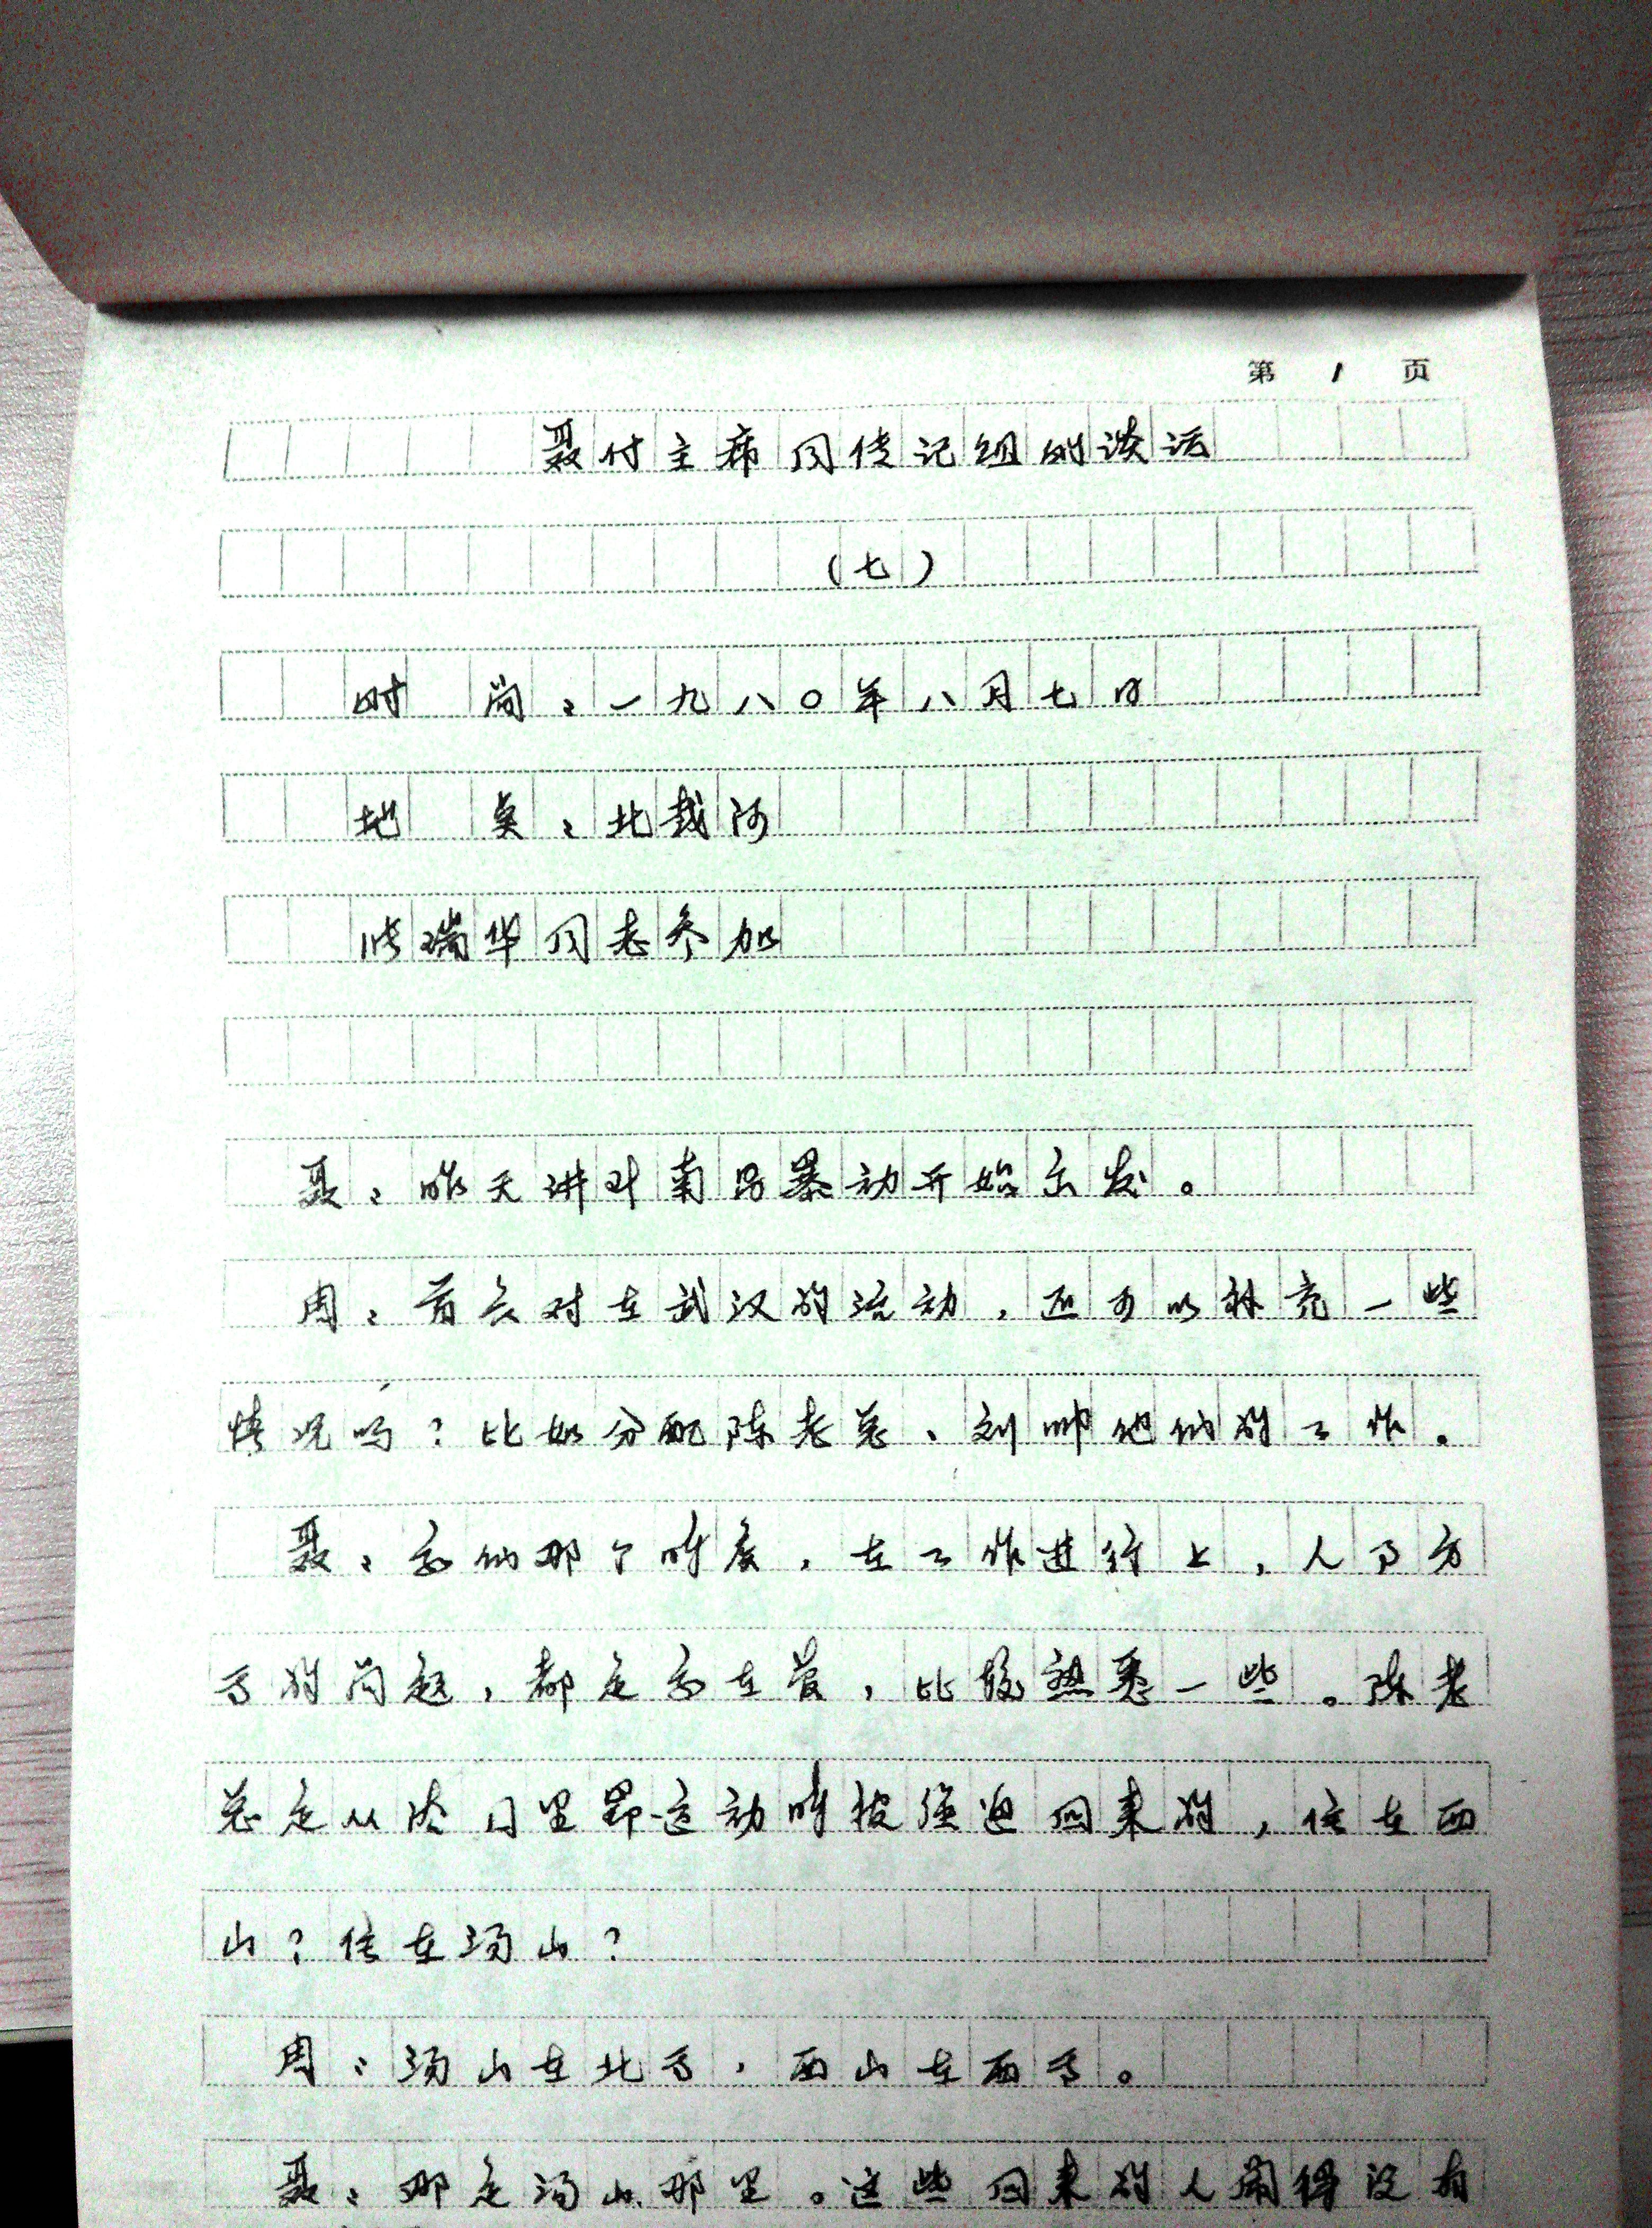 第 1 页
聂付主席同传记组的谈话
（七）
时 间：一九八〇年八月七日
地 点：北戴河
张瑞华同志参加
聂：昨天讲对南昌暴动开始出发。
周：首长对在武汉的活动，还可以补充一些
情况吗？比如分配陈老总、刘帅他们的工作。
聂：我们那个时候，在工作进行上，人事方
面的问题，都是我在管，比较熟悉一些。陈老
总是从法国里昂运动时被强迫回来的，住在西
山？住在汤山？
周：汤山在北面，西山在西面。
聂：那是汤山那里。这些回来的人闹得没有